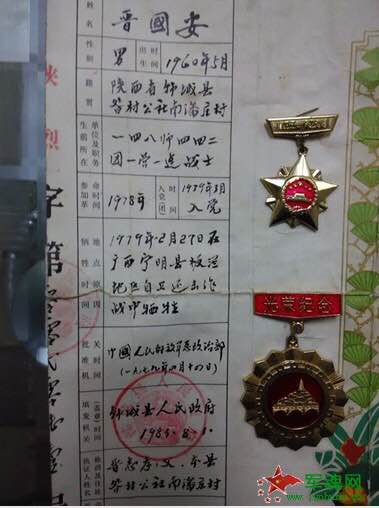 姓名 晋國安
性别 男 出生时间 1960年5月
籍贯 陕西省韩城县
昝村公社南潘庄村
生前所在单位及职务 一四八师四四二
团一营一连战士
参加革命时间 1978年 入党(团)时间 1979年3月
入党
牺牲时间地点原因 1979年2月27日在
广西宁明县板
地区自卫还击作
战中牺牲
批准机关时间 中国人民解放军总政治部
(一九七九年四月十四日)
填发机关(盖章)时间 韩城县人民政府
198.8.1.
持证人姓名 晋志孝,父,本县
昝村公社南潘庄村
陕烈字第
光荣纪念
军魂网